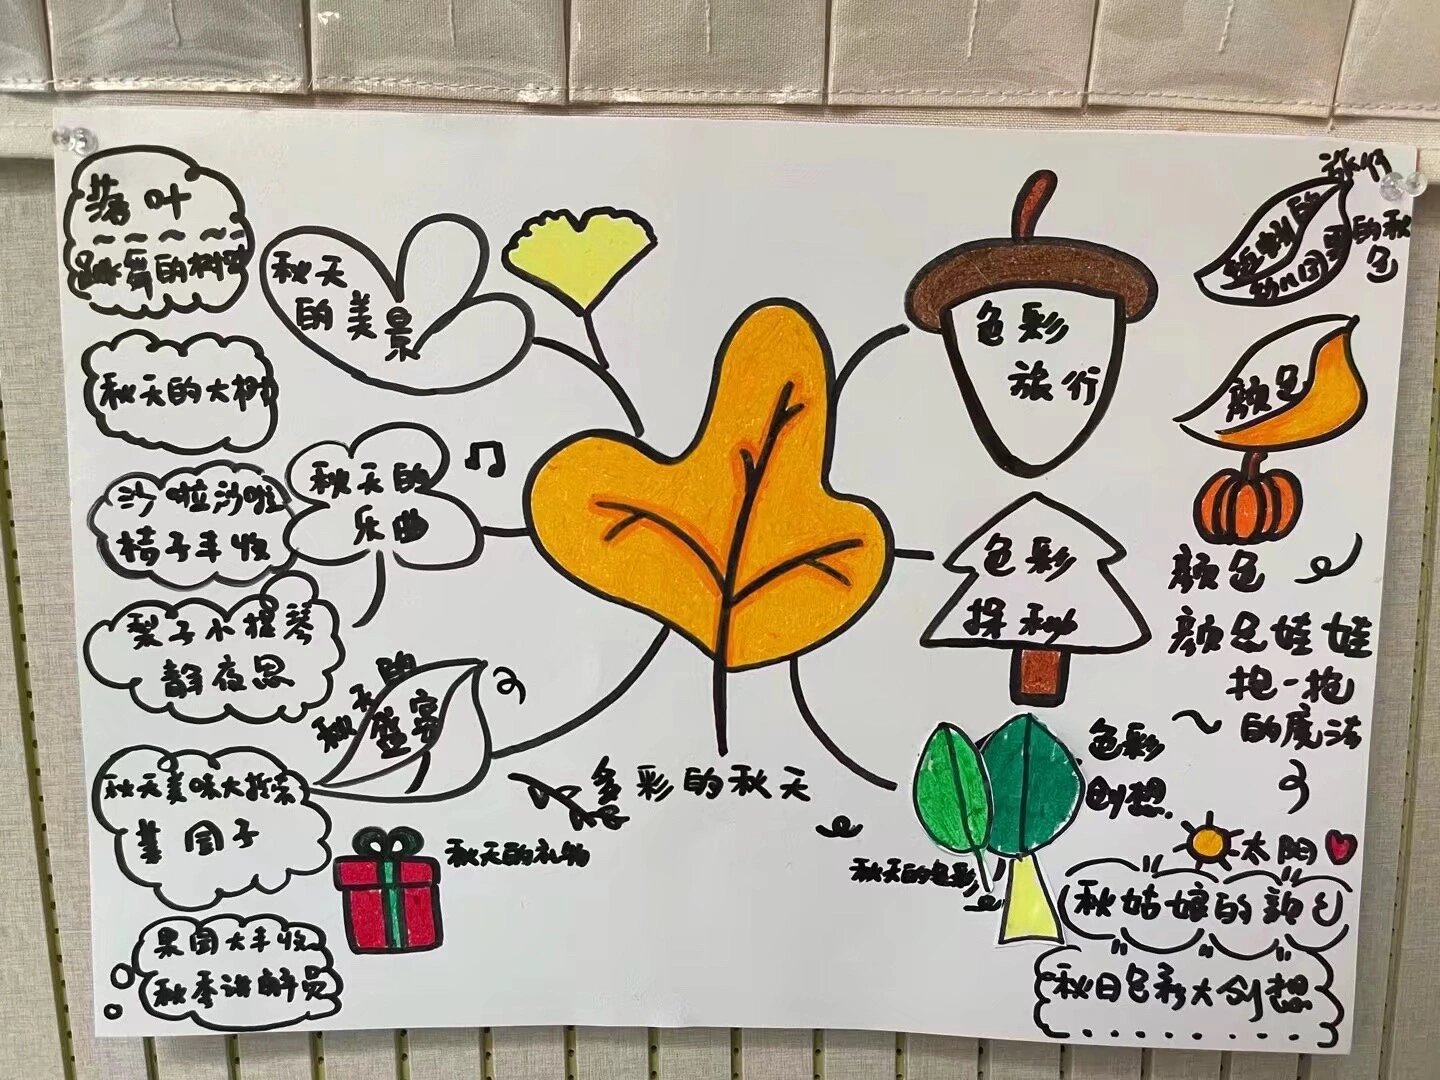 落叶
跳舞的树叶
秋天的大树
沙啦沙啦
桔子丰收
梨子小提琴
静夜思
秋天美味大探索
果园大丰收
秋季讲解员
秋天
的美景
秋天的
乐曲
秋天的
盛宴
秋天的礼物
多彩的秋天
色彩
旅行
色彩
探秘
色彩
创想
秋天的色彩
旅行
的秋
色
幼儿园里
颜色
颜色
颜色娃娃
抱一抱
的魔法
太阳
秋姑娘的颜色
秋日色彩大创想